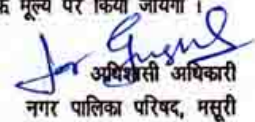 के मूल्य पर किया जायेगा ।
अधिशासी अधिकारी
नगर पालिका परिषद, मसूरी